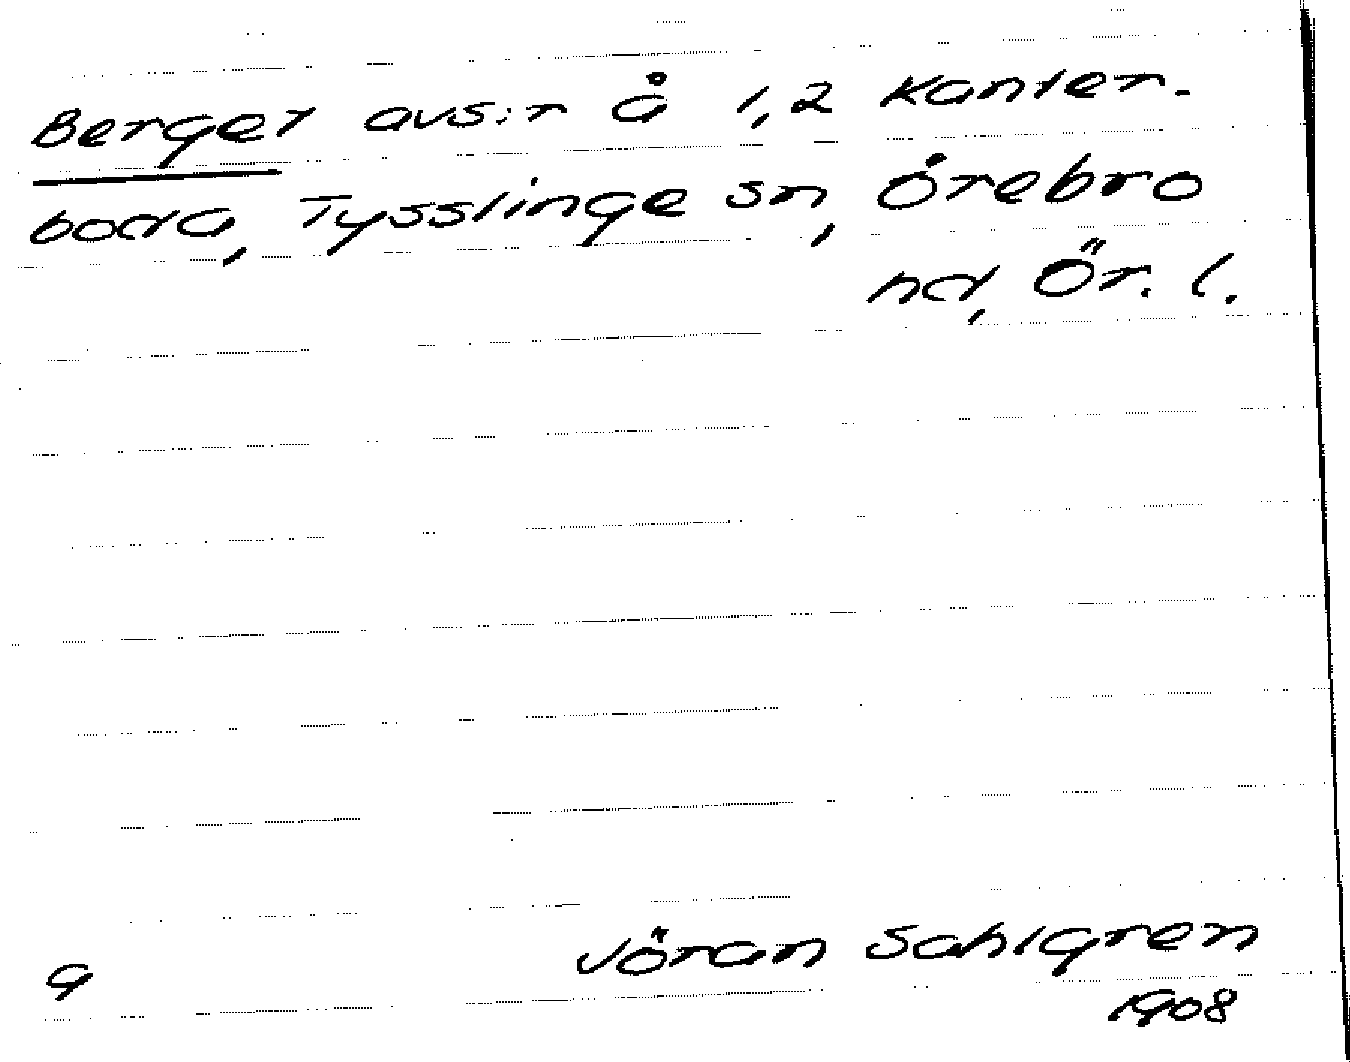 Berget avs:r å 1,2 Kanter-
boda, Tysslinge sn, Örebro
hd, Ör. l.
Jöran Sahlgren
a
1908